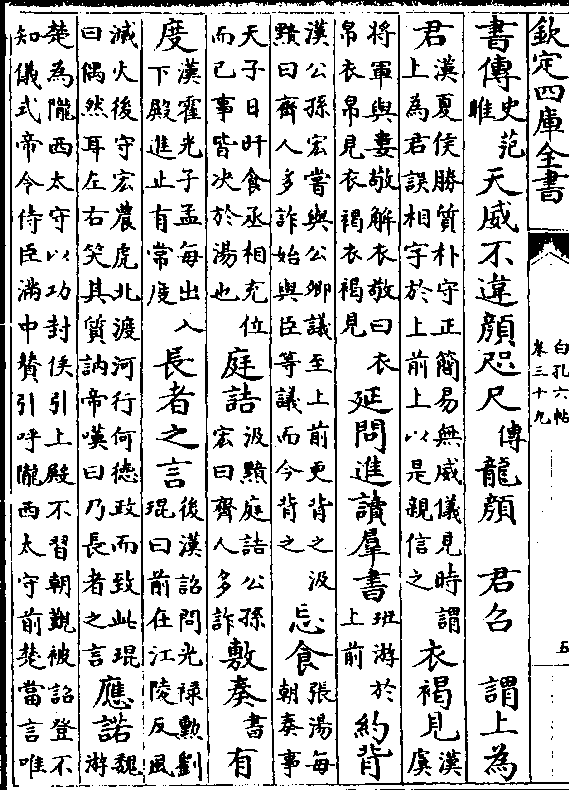 欽定四庫全書
白孔六帖
卷三十九
五
書傳史范睢天威不違顏咫尺傳龍顏 君召 謂上為
君漢夏侯勝質朴守正簡易無威儀見時謂上為君誤相字於上前上以是親信之衣褐見漢虞
將軍與婁敬解衣敬曰衣帛衣帛見衣褐衣褐見延問進讀羣書班游於上前約背
漢公孫宏嘗與公卿議至上前更背之汲黯曰齊人多詐始與臣等議而今背之忘食張湯每朝奏事
天子日旰食丞相充位而已事皆决於湯也庭詰汲黯庭詰公孫宏曰齊人多詐敷奏書有
度漢霍光子孟每出入下殿進止有常度長者之言後漢詔問光祿勲劉琨曰前在江陵反風
滅火後守宏農虎北渡河行何德政而致此琨曰偶然耳左右笑其質訥帝嘆曰乃長者之言應諾魏游
楚為隴西太守以功封侯引上殿不習朝覲被詔登不知儀式帝令侍臣滿中贊引呼隴西太守前楚當言唯